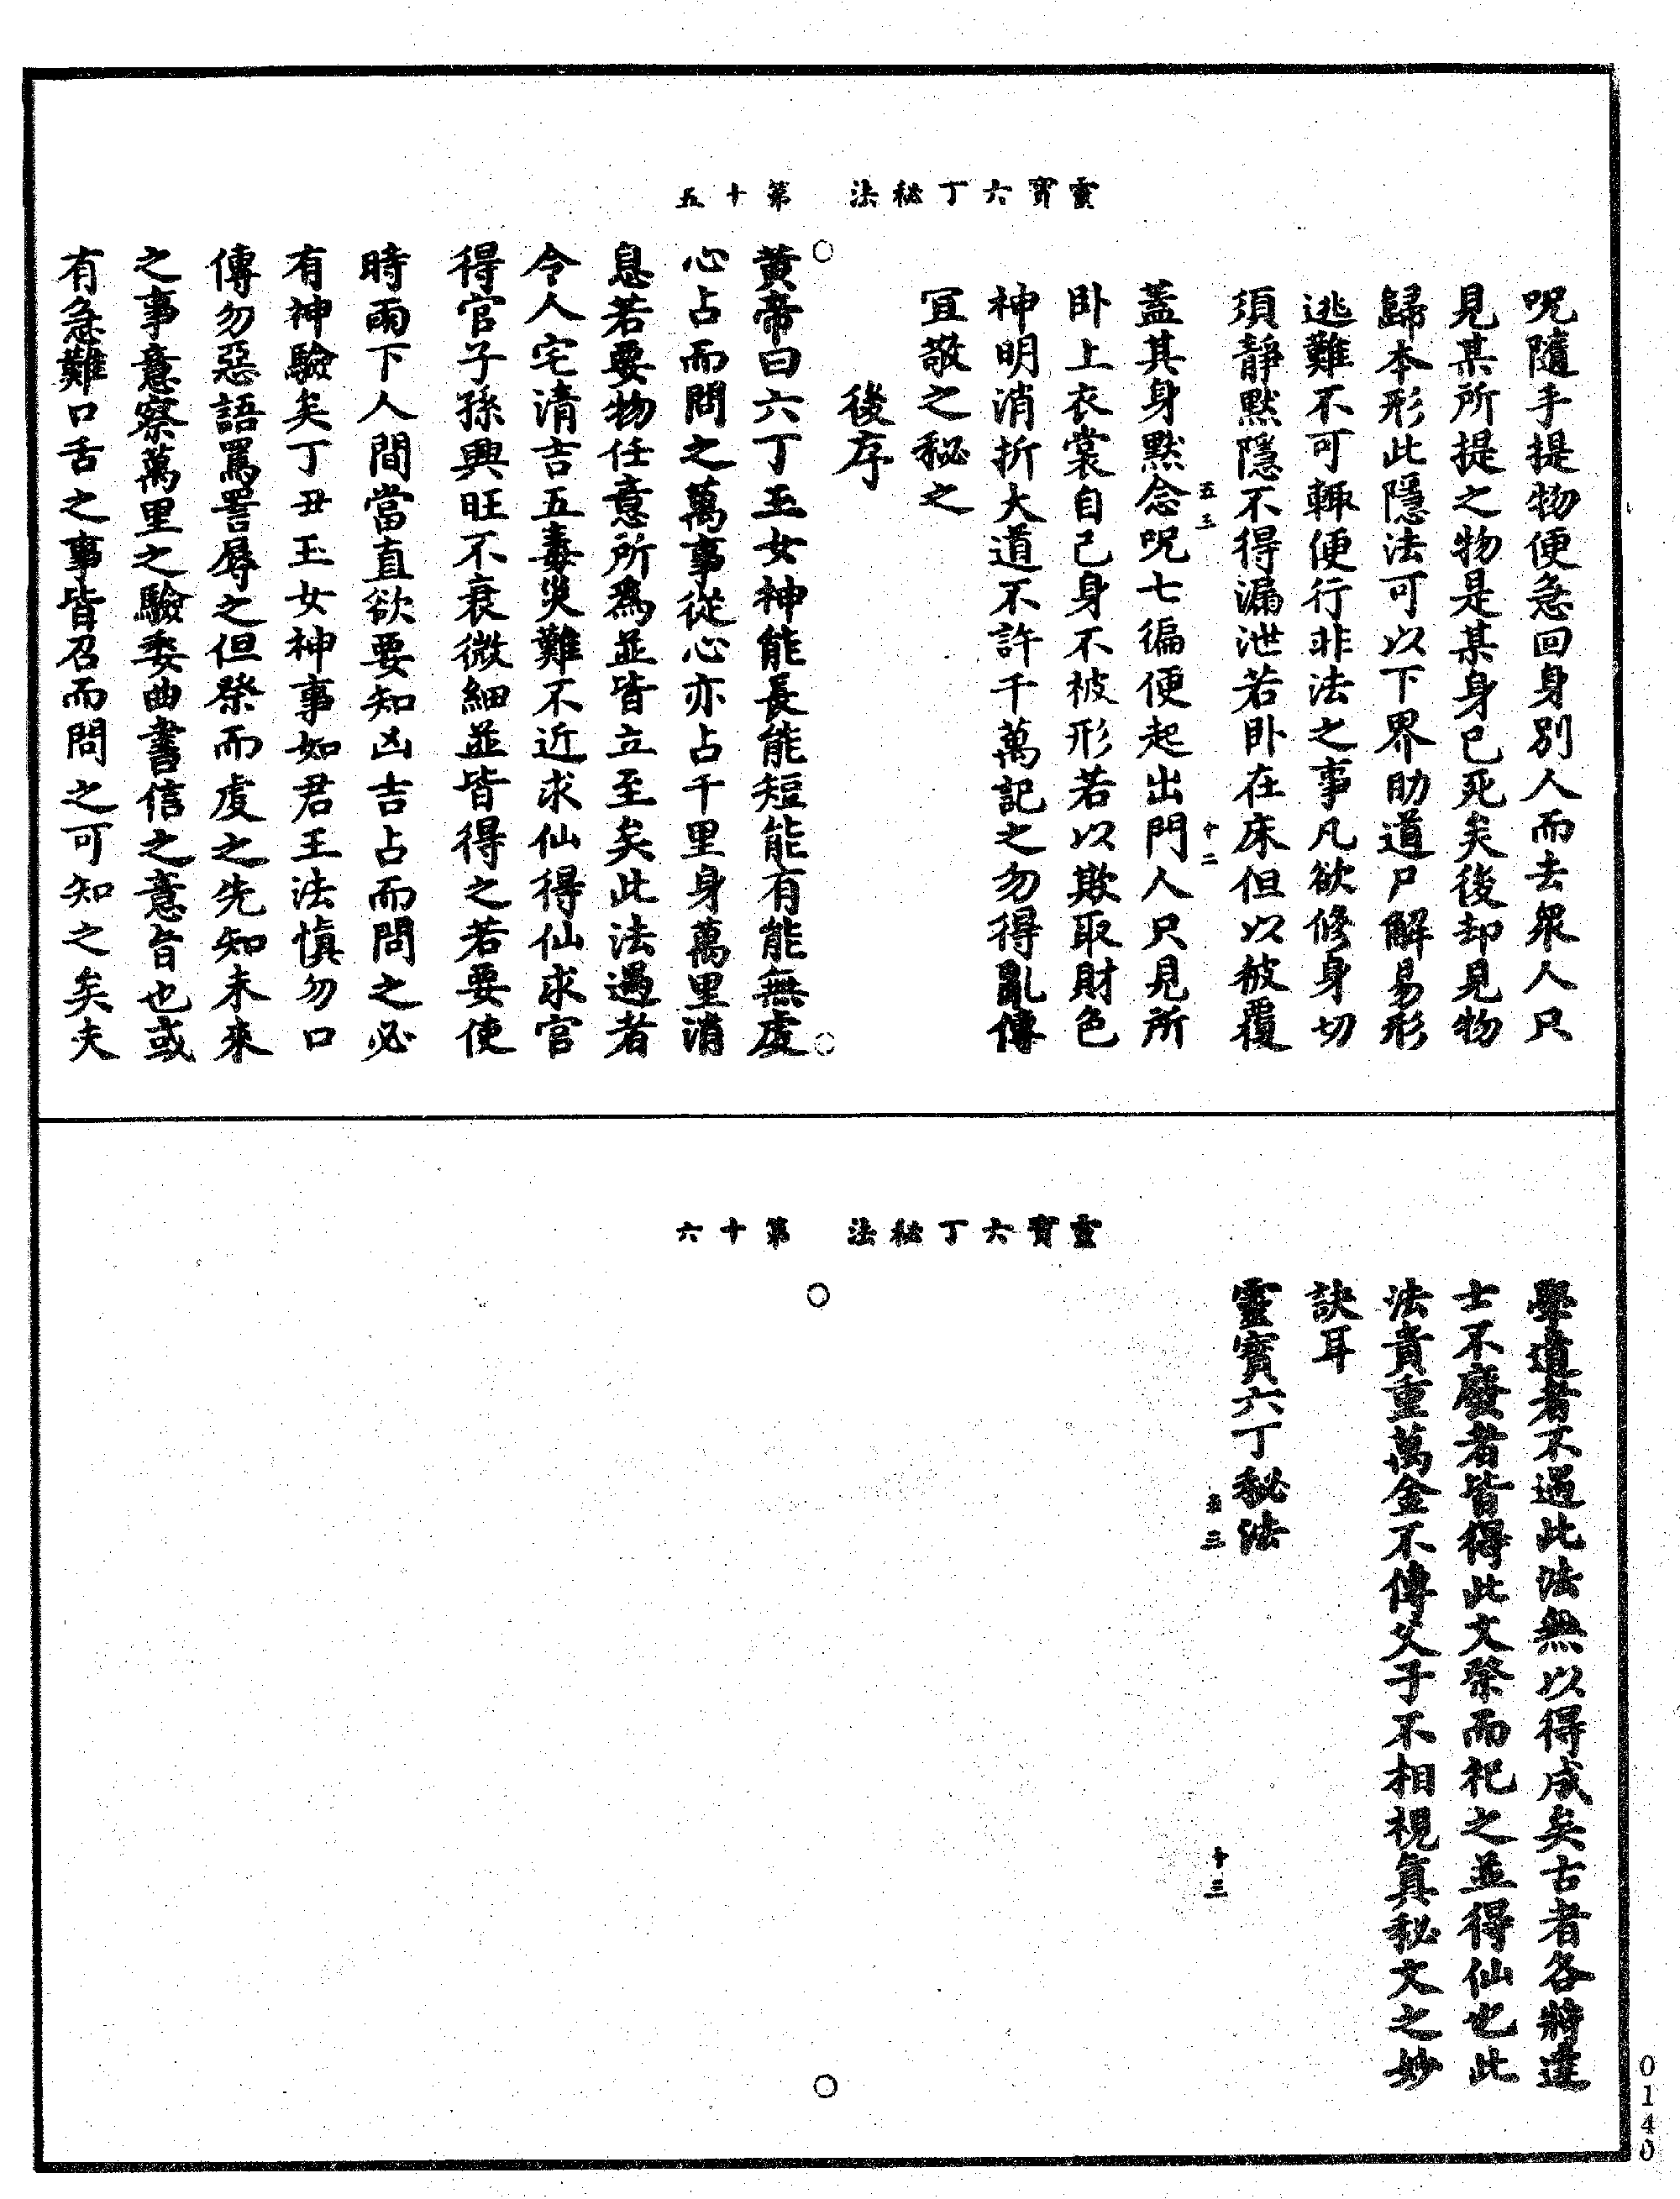 靈寶六丁秘法　第十五
呪隨手提物便急回身別人而去衆人只
見某所提之物是某身已死矣後却見物
歸本形此隱法可以下界助道尸解易形
逃難不可輙便行非法之事凡欲修身切
須靜默隱不得漏泄若卧在床但以被覆
蓋其身默念呪七徧便起出門人只見所
卧上衣裳自己身不被形若以欺取財色
神明消折大道不許千萬記之勿得亂傳
冝敬之秘之
後序
黄帝曰六丁玉女神能長能短能有能無虔
心占而問之萬事從心亦占千里身萬里消
息若要物任意所爲並皆立至矣此法過者
令人宅清吉五毒災難不近求仙得仙求官
得官子孫興旺不衰微細並皆得之若要使
時雨下人間當直欲要知凶吉占而問之必
有神驗矣丁丑玉女神事如君王法慎勿口
傳勿惡語罵詈辱之但祭而虔之先知未來
之事意察萬里之驗委曲書信之意旨也或
有急難口舌之事皆召而問之可知之矣夫
五三
十二
靈寶六丁秘法　第十六
學道者不過此法無以得成矣古者各將達
士不廢者皆得此文祭而祀之並得仙也此
法貴重萬金不傳父子不相視真秘文之妙
訣耳
靈寶六丁秘法
五三
十三
0140